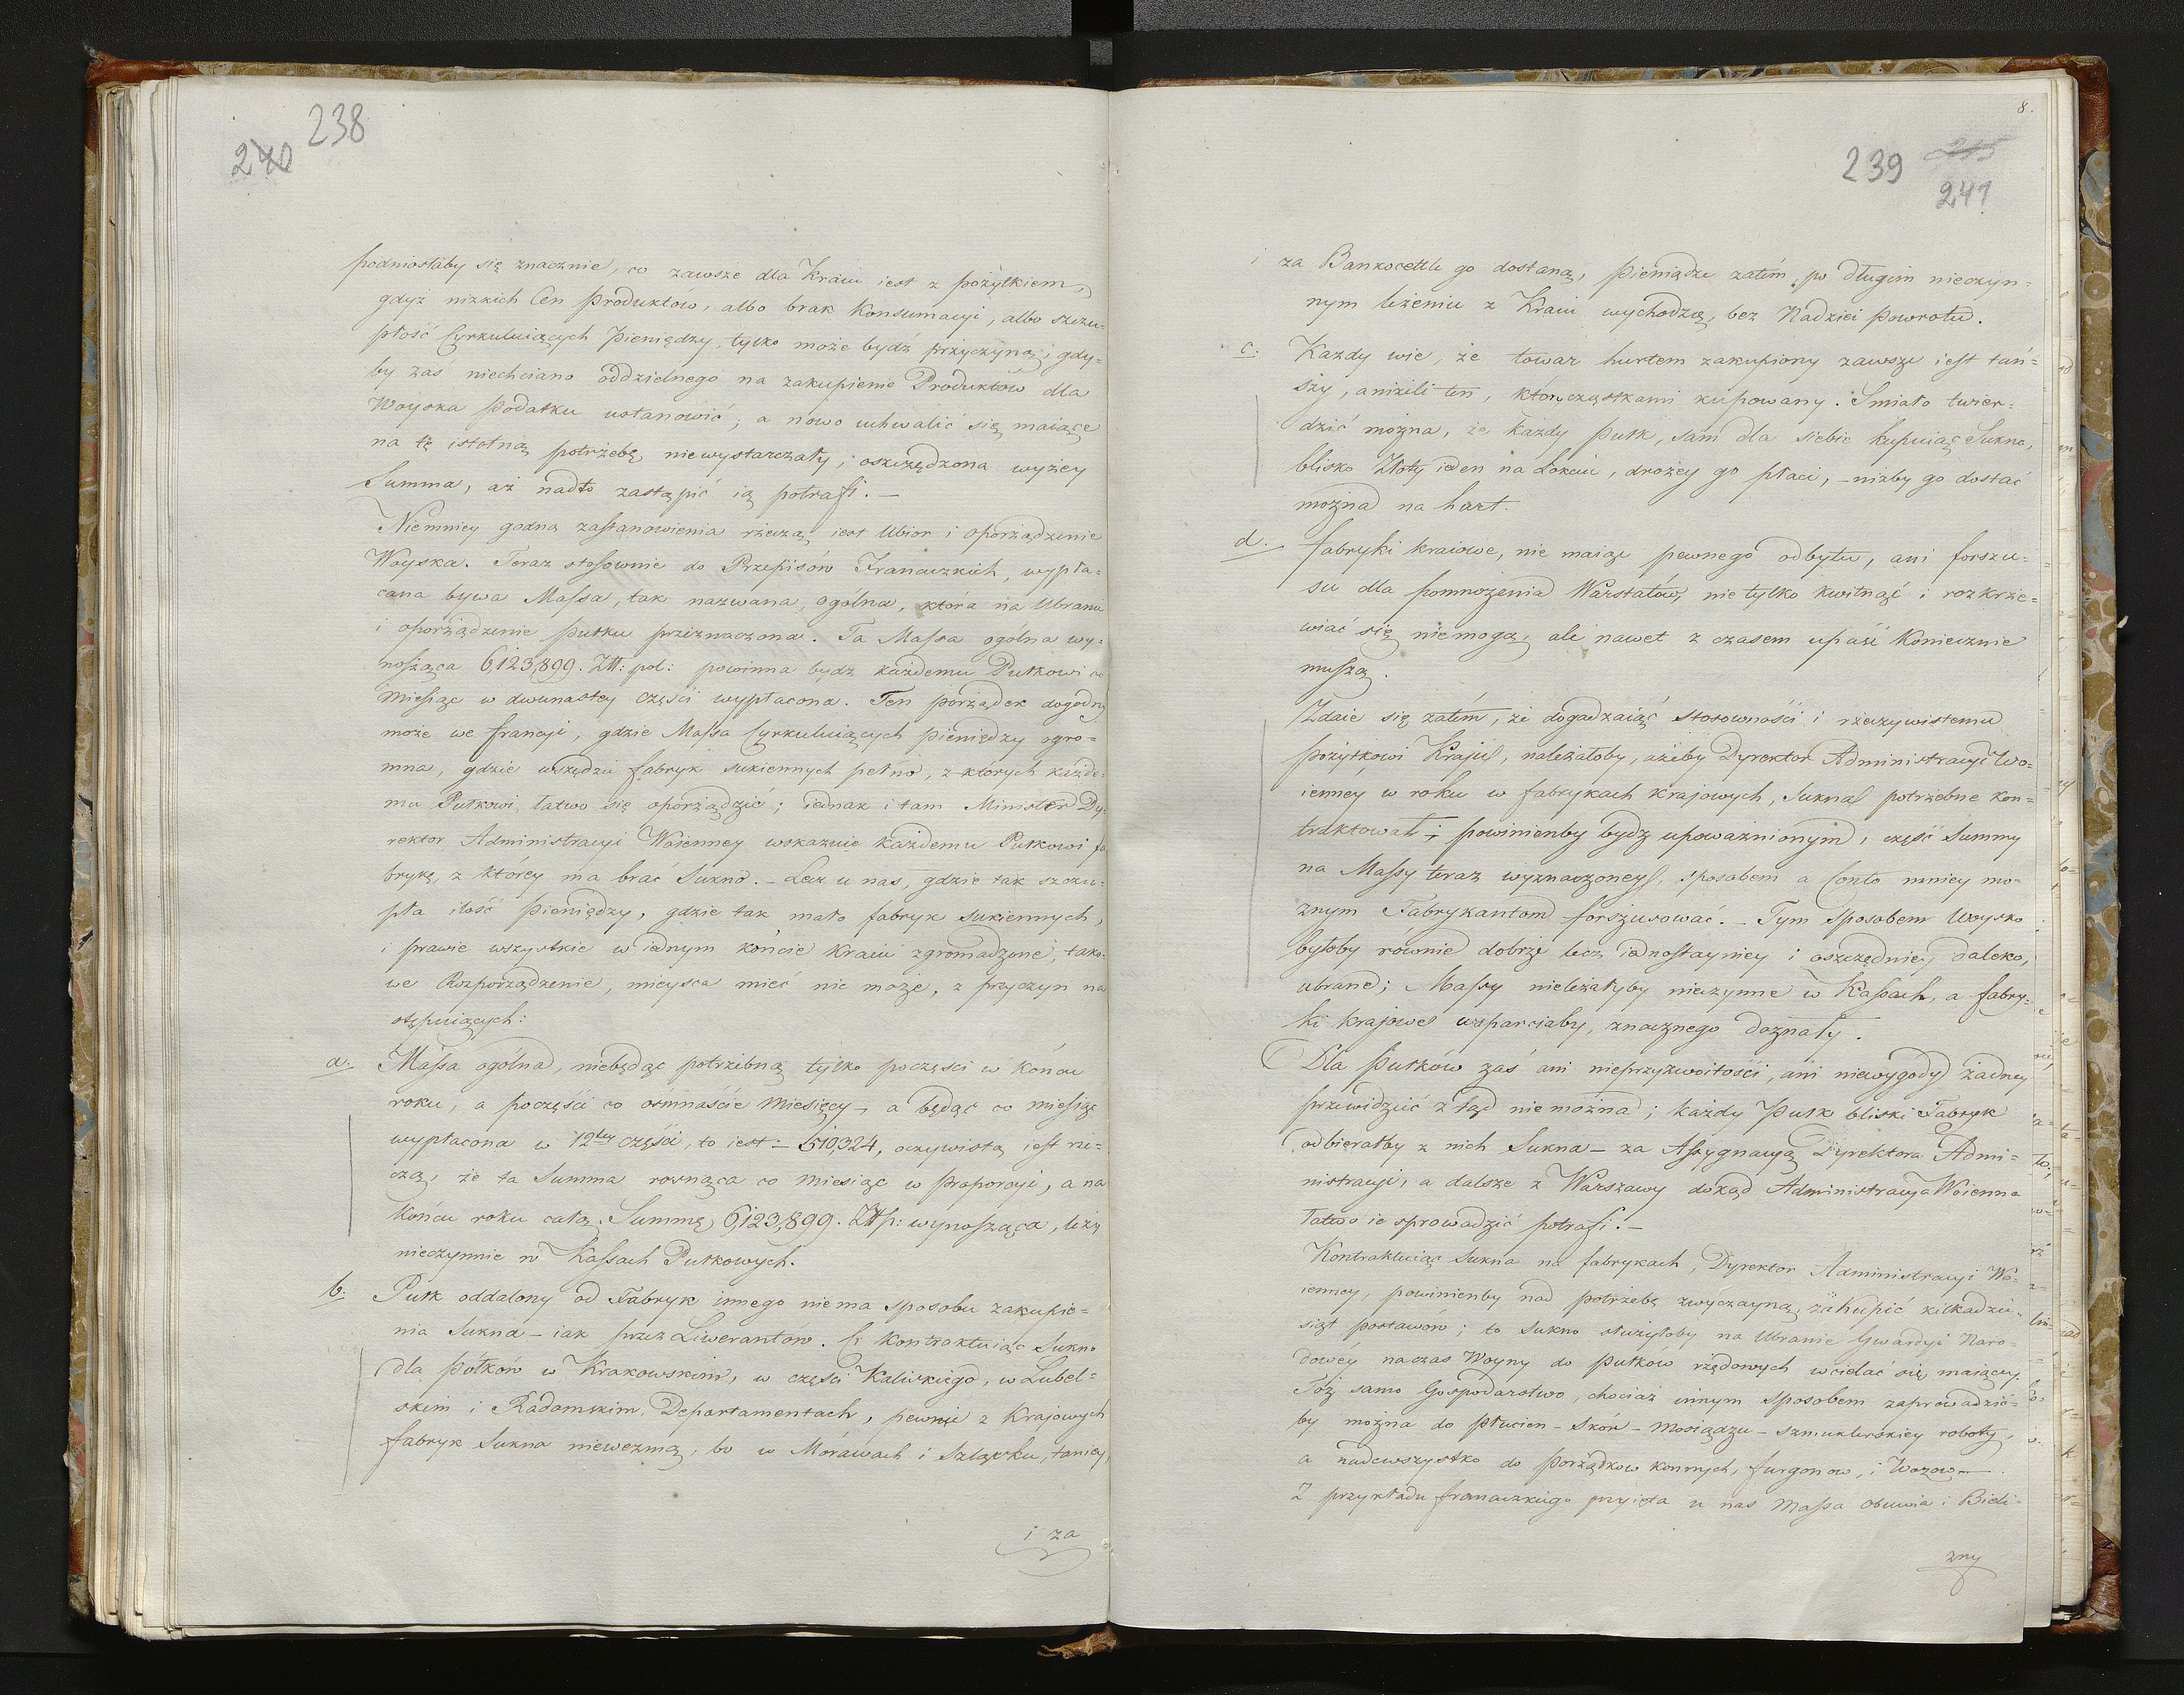 238
240
podniosłaby się znacznie, co zawsze dla Kraiu iest z pożytkiem,
gdyż nizkich Cen Produktów, albo brak Konsumacyi, albo szczu-
płość Cyrkuluiących Pieniędzy, tylko może bydź przyczyną; gdy-
by zaś niechciano oddzielnego na zakupienie Produktów dla
Woyska Podatku ustanowić, a nowo uchwalić się maiące
na tę istotną potrzebę, niewystarczały, oszczędzona wyżey
Summa, aż nadto zastąpić ią potrafi. —
Niemniey godną zastanowienia rzeczą iest Ubior i oporządzenie
Woyska. Teraz stosownie do Przepisów Francuzkich, wypła-
cana bywa Massa, tak nazwana, ogólna, która na Ubranie
i oporządzenie Pułku przeznaczona. Ta Massa ogólna wy-
nosząca 6,123,899. Złł: pol: powinna bydź każdemu Pułkowi co
miesiąc w dwunastey części wypłacona. Ten porządek dogodny
może we francyi, gdzie Massa Cyrkuluiących pieniędzy ogro-
mna, gdzie wszędzie fabryk sukiennych pełno, z których każde-
mu Pułkowi łatwo się oporządzić; iednak i tam Minister Dy-
rektor Administracyi Woienney wskazuie każdemu Pułkowi fa
brykę, z którey ma brać Sukno. — Lecz u nas, gdzie tak szczu-
pła ilość Pieniędzy, gdzie tak mało fabryk sukiennych,
i prawie wszystkie w iednym końcie kraiu zgromadzone, tako-
we Rozporządzenie, mieysca mieć nie może, z przyczyn na
stępuiących:
a. Massa ogólna, niebędąc potrzebną tylko poczęści w końcu
roku, a poczęści co ośmnaście Miesięcy — a będąc co miesiąc
wypłacona w 12tey części, to iest: — 510,324, oczywistą iest rze-
czą, że ta Summa rosnąca co miesiąc w Proporcyi, a na
końcu roku całą Summę 6,123,899. Złłp: wynosząca, leży
nieczynnie w Kassach Pułkowych.
b. Pułk oddalony od Fabryk innego niema sposobu zakupie-
nia Sukna — iak przez Liwerantów. Ci kontraktuiąc Sukno
dla Półków w Krakowskim, w części Kaliskiego, w Lubel-
skim i Radomskim Departamentach, pewnie z Krajowych
fabryk Sukna niewezmą, bo w Morawach i Szląsku, taniey,
i za
8.
239 215
241
i za Bankocettle go dostaną, pieniądze zatém po długim nieczyn-
nym leżeniu z Kraiu wychodzą, bez Nadziei Powrotu.
c. Każdy wie, że towar hurtem zakupiony zawsze iest tań-
szy, aniżeli ten, który cząstkami kupowany. Śmiało twier-
dzić można, że każdy Pułk, sam dla siebie kupuiąc Sukno,
blisko Złoty ieden na Łokciu, drożey go płaci, — niżby go dostać
można na hurt.
d. fabryki kraiowe, nie maiąc pewnego odbytu, ani forszu-
su dla pomnożenia Warsztatów, nie tylko kwitnąć i rozkrze-
wiać się niemogą, ale nawet z czasem upaść koniecznie
muszą.
Zdaie się zatém, że dogadzaiąc Stosowności i rzeczywistemu
pożytkowi Kraju, należałoby, ażeby Dyrektor Administracyi Wo-
ienney w roku w fabrykach krajowych, Sukna potrzebne kon-
traktował; i powinienby bydź upoważnionym, część Summy
na Massy teraz wyznaczoney, sposobem a Conto mniey mo-
znym Fabrykantom forszusować. — Tym sposobem Woysko
byłoby równie dobrze lecz iednostayniey i oszczędniey daleko,
ubrane; Massy nieleżałyby nieczynne w Kassach, a fabry-
ki krajowe wsparciaby, znacznego doznały.
Dla Pułków zaś ani nieprzyzwoitości, ani niewygody żadney
przewidzieć z tąd nie można; każdy Pułk bliski Fabryk
odbierałby z nich Sukna — za Assygnacyą Dyrektora Admi-
nistracyi, a dalsze z Warszawy dokąd Administracya Woienna
łatwo ie sprowadzić potrafi. —
Kontraktuiąc Sukna na fabrykach, Dyrektor Administracyi Wo-
ienney, powinienby nad potrzebę zwyczayną, zakupić kilkadzie-
siąt postawów; to Sukno służyłoby na Ubranie Gwardyi Naro-
dowéy naczas Woyny do Pułków rzędowych wcielać się maiącey.
Toż samo Gospodarstwo, chociaż innym sposobem zaprowadzić-
by można do Płucien — Skór — Mosiądzu — szmuklerskiey roboty,
a nadewszystko do Porządkow konnych, furgonow, i Wozow —.
Z przykładu francuzkiego przyięta u nas Massa obuwia i Bieli-
zny